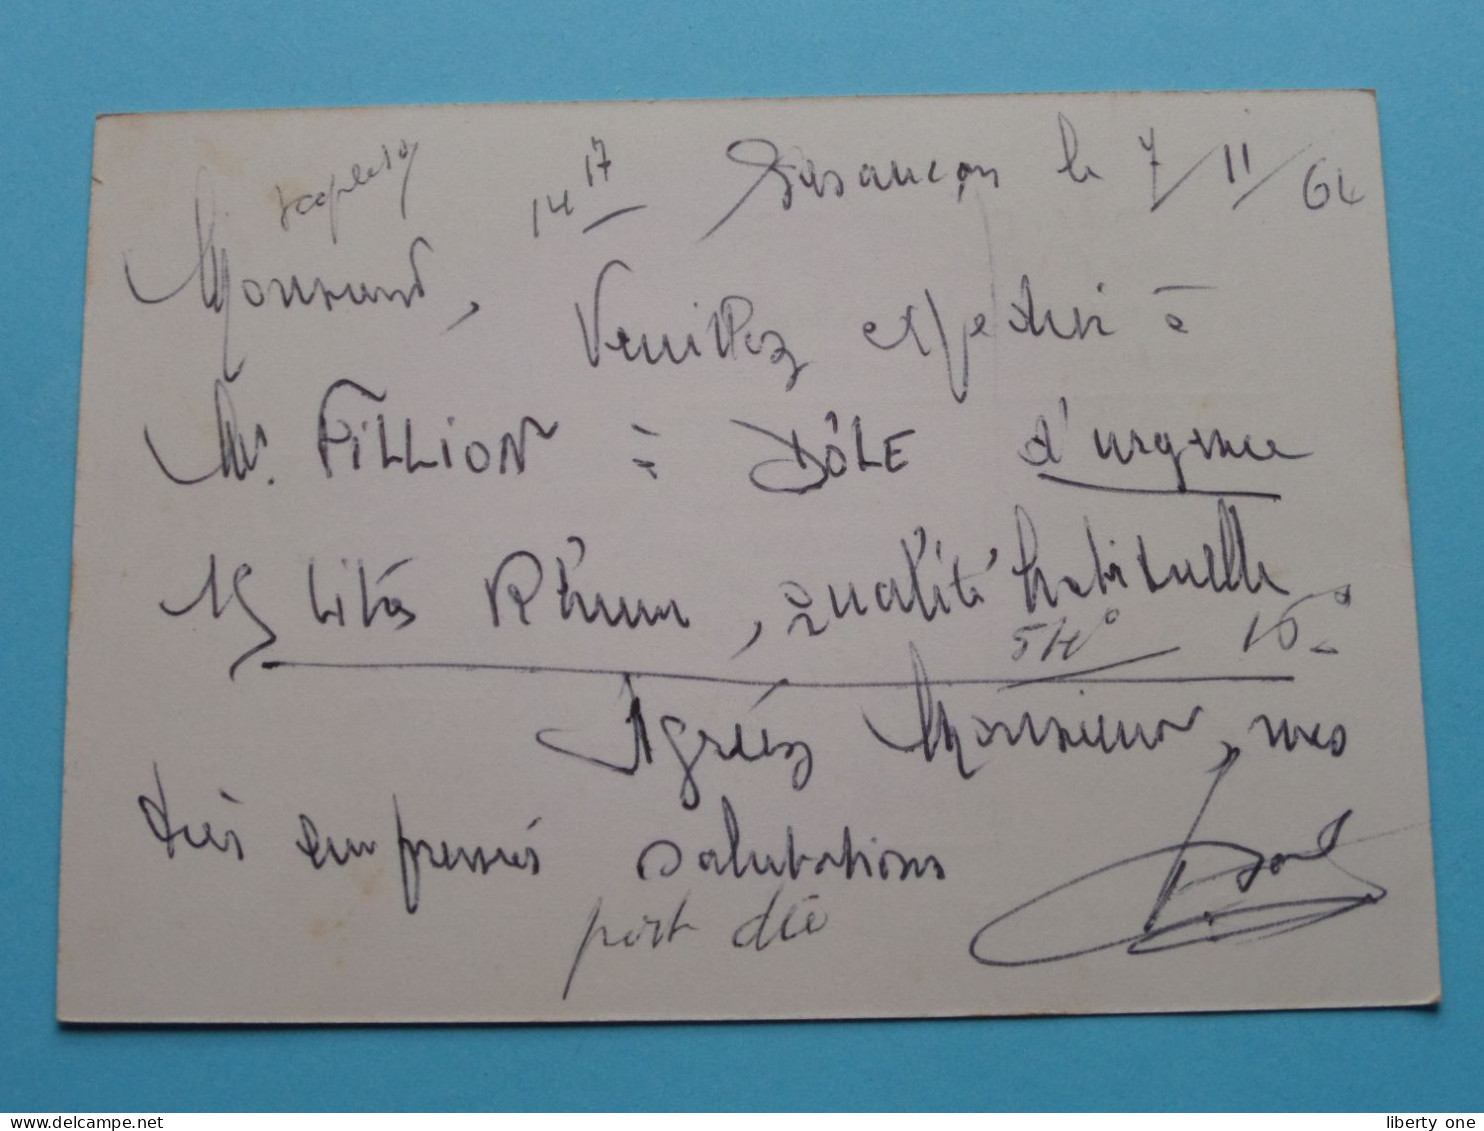 14 17 Besançon le 7/11/64
Monsieur,
Veuillez expédier à
Mr. FILLION à DÔLE d'urgence
15 litres Rhum, qualité habituelle
54° 
Agréez Monsieur, mes
très empressés salutations
port dû
liberty one